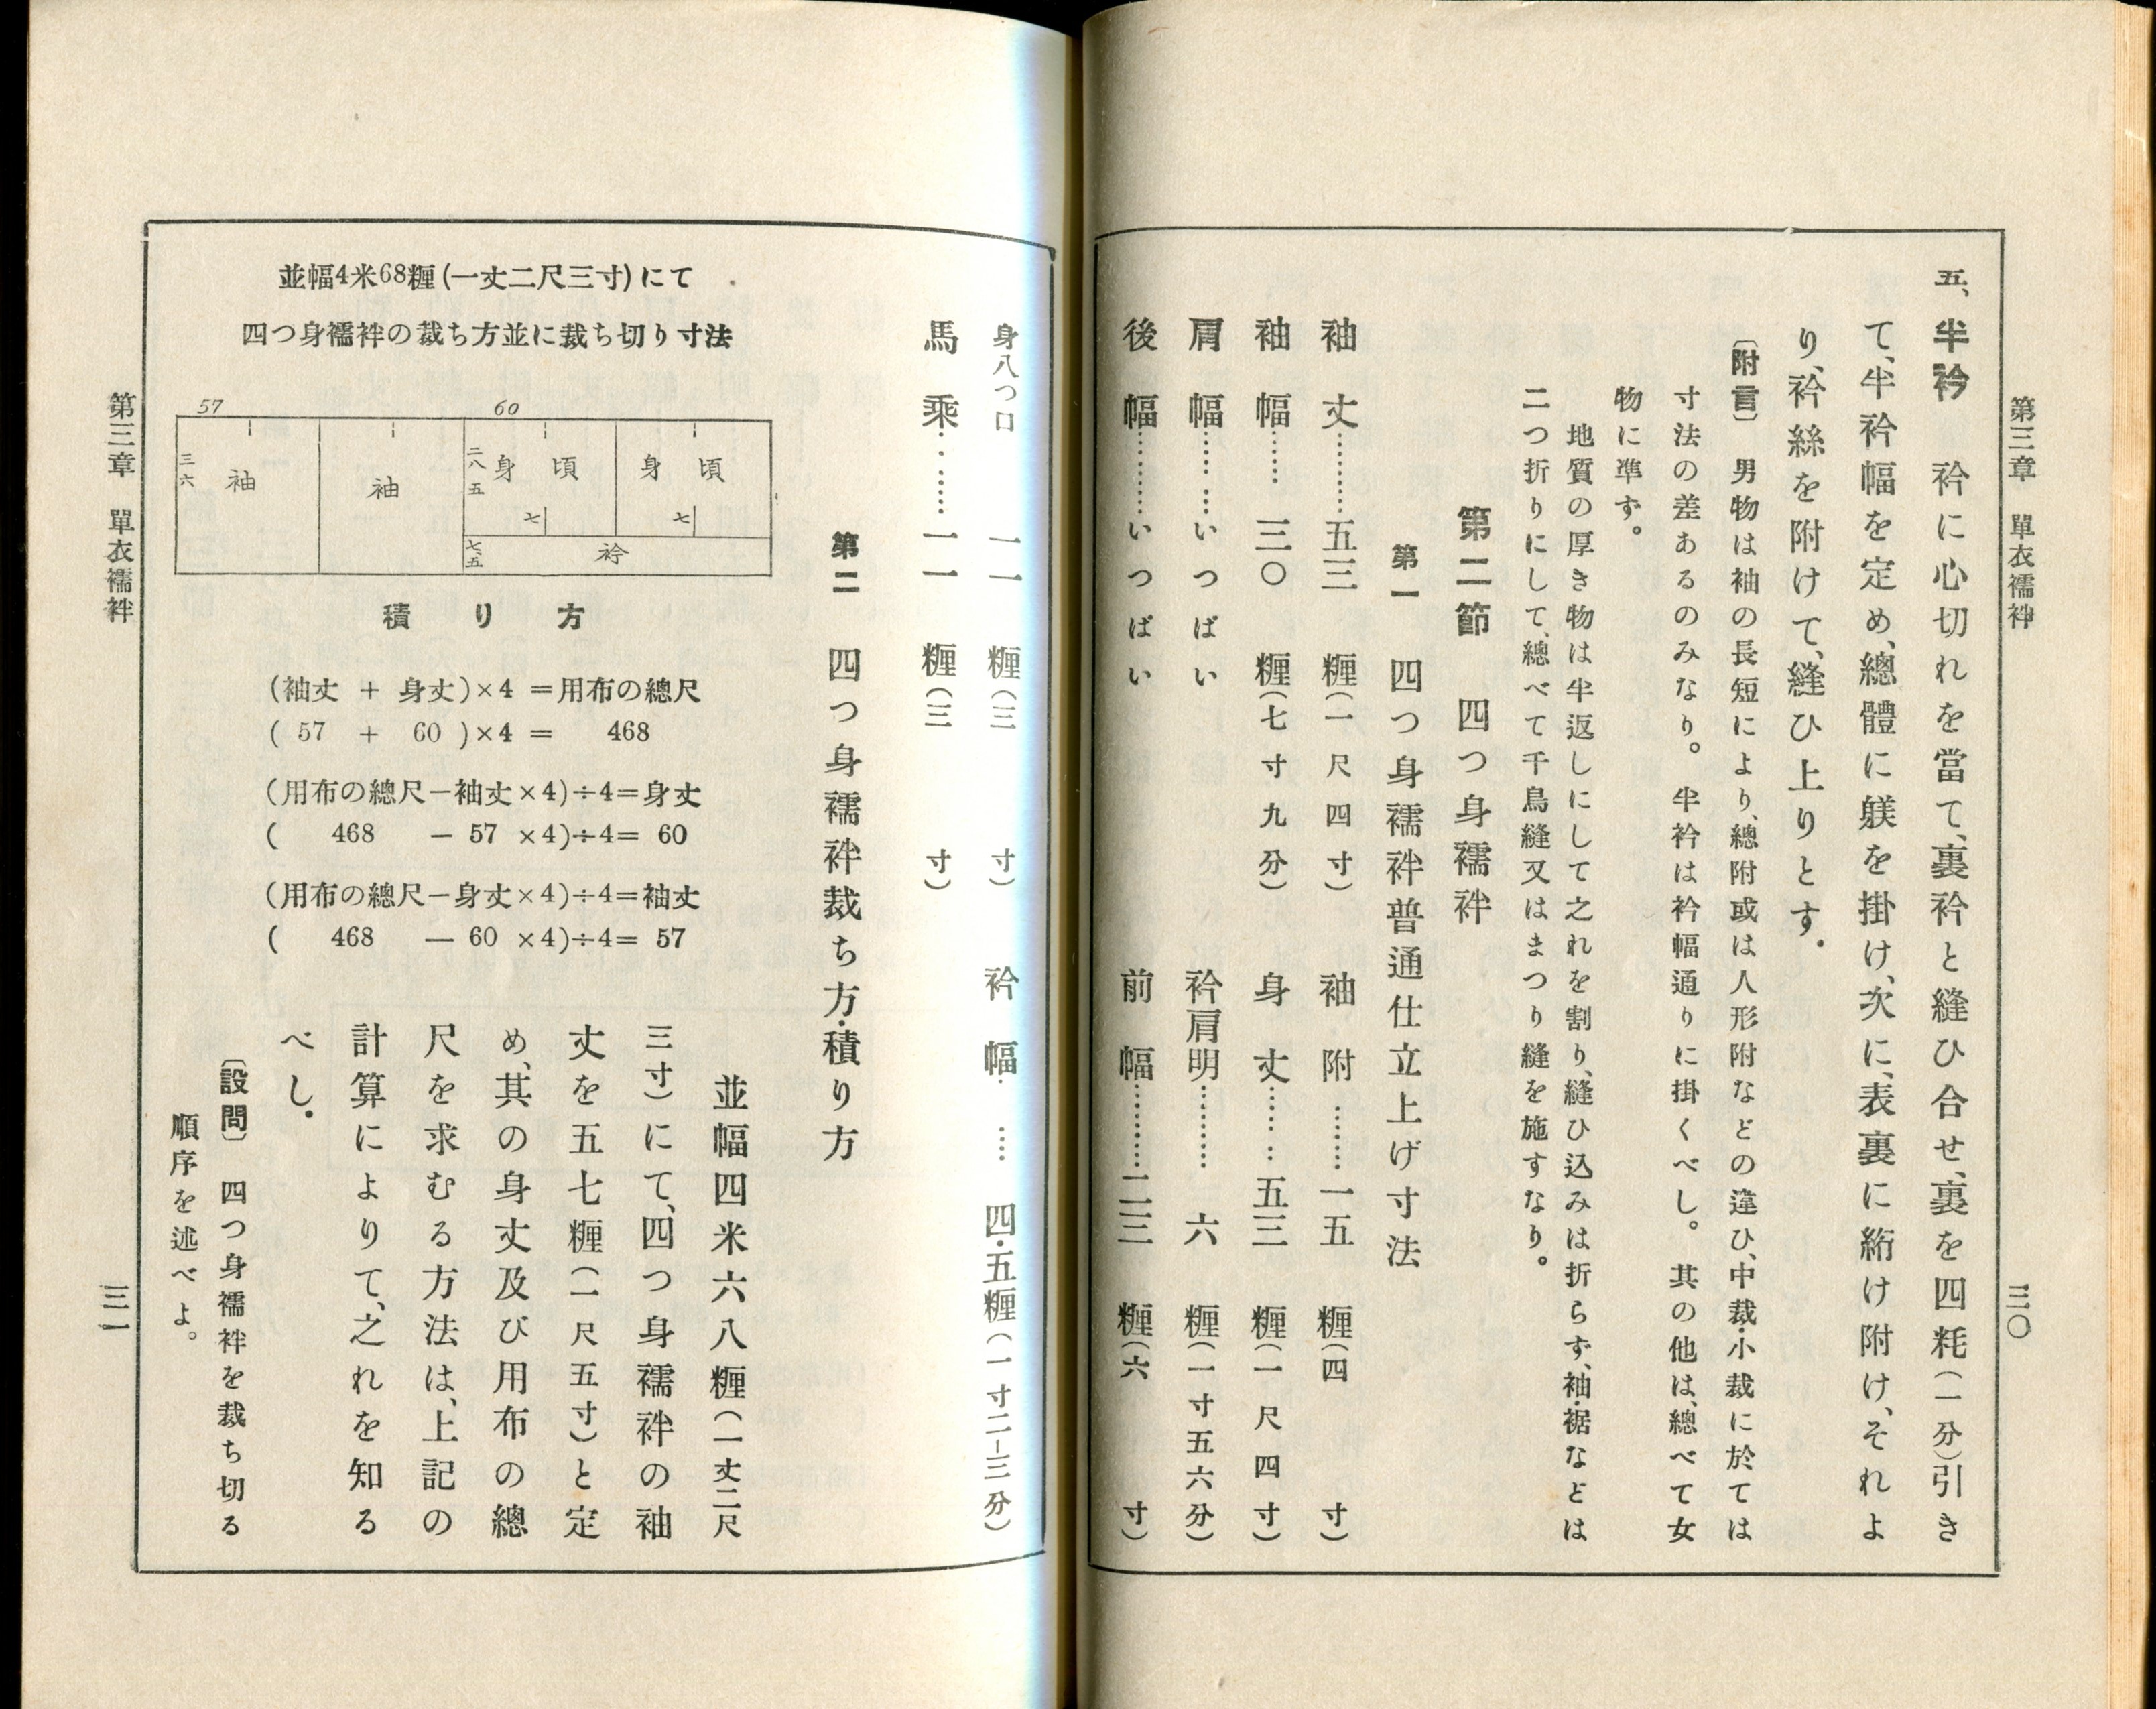 第三章　單衣襦袢
三〇
五、半衿　衿に心切れを當て、裏衿と縫ひ合せ、裏を四粍(一分)引き
て、半衿幅を定め、總體に躾を掛け、次に、表裏に絎け附け、それよ
り、衿絲を附けて、縫ひ上りとす。
〔附言〕　男物は袖の長短により、總附或は人形附などの違ひ、中裁・小裁に於ては
寸法の差あるのみなり。　半衿は衿幅通りに掛くべし。　其の他は、總べて女
物に準ず。
地質の厚き物は半返しにして之れを割り、縫ひ込みは折らず、袖・裾などは
二つ折りにして、總べて千鳥縫又はまつり縫を施すなり。
第二節　四つ身襦袢
第一　四つ身襦袢普通仕立上げ寸法
袖丈………五三糎(一尺四寸)　袖附………一五糎(四寸)
袖幅……三〇糎(七寸九分)　身丈……五三糎(一尺四寸)
肩幅……いつぱい　衿肩明………六糎(一寸五六分)
後幅………いつぱい　前幅………二三糎(六寸)
身八つ口　一一糎(三寸)　衿幅……四・五糎(一寸二―三分)
馬乘……一一糎(三寸)
第二　四つ身襦袢裁ち方・積り方
並幅4米68糎(一丈二尺三寸)にて
四つ身襦袢の裁ち方並に裁ち切り寸法
57　60
三六　袖　袖　二八五　身頃　身頃
七　七
七五　衿
積り方
(袖丈 + 身丈)×4 =用布の總尺
( 57 + 60 )×4 = 468
(用布の總尺−袖丈×4)÷4=身丈
( 468 − 57 ×4)÷4= 60
(用布の總尺−身丈×4)÷4=袖丈
( 468 — 60 ×4)÷4= 57
並幅四米六八糎(一丈二尺
三寸)にて、四つ身襦袢の袖
丈を五七糎(一尺五寸)と定
め、其の身丈及び用布の總
尺を求むる方法は、上記の
計算によりて、之れを知る
べし。
〔設問〕　四つ身襦袢を裁ち切る
順序を述べよ。
第三章　單衣襦袢
三一